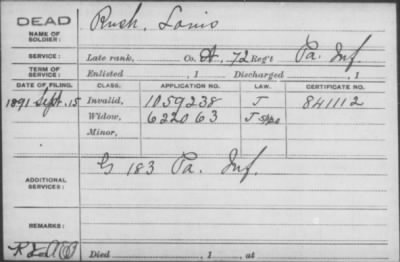 DEAD
NAME OF SOLDIER: Rush, Louis
SERVICE: Late rank, Co. A, 72 Reg't Pa. Inf.
TERM OF SERVICE: Enlisted , 1 Discharged , 1
DATE OF FILING. CLASS. APPLICATION NO. LAW. CERTIFICATE NO.
1891 Sept. 15 Invalid, 1059238 J 841112
Widow, 622063
Minor,
G 183 Pa. Inf.
ADDITIONAL SERVICES:
REMARKS:
Died , 1 , at